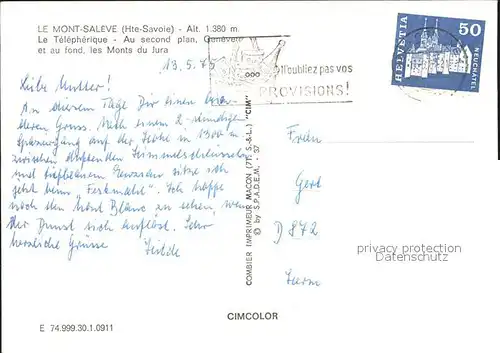 LE MONT-SALEVE (Hte-Savoie) - Alt. 1.380 m.
Le Téléphérique - Au second plan, Genève
et au fond, les Monts du Jura
13.5.75
N'oubliez pas vos
PROVISIONS!
HELVETIA
50
NEUCHATEL
Liebe Mutter!
An diesem Tage Dir einen beson-
deren Gruss. Nach einem 2-stündigen
Spaziergang auf der Höhe in 1300 m.
zwischen duftenden Himmelsschlüsseln
und tiefblauem Enzian sitze ich
jetzt beim "  ". Ich hoffe
noch den Mont Blanc zu sehen, wenn
der Dunst sich auflöst. Sehr
herzliche Grüsse
Hilde
COMBIER IMPRIMEUR MACON (71. S.-&-L.) "CIM"
© by S.P.A.D.E.M. - 37
Frau
Gert
D 872
privacy protection
VERSION
CIMCOLOR
E 74.999.30.1.0911